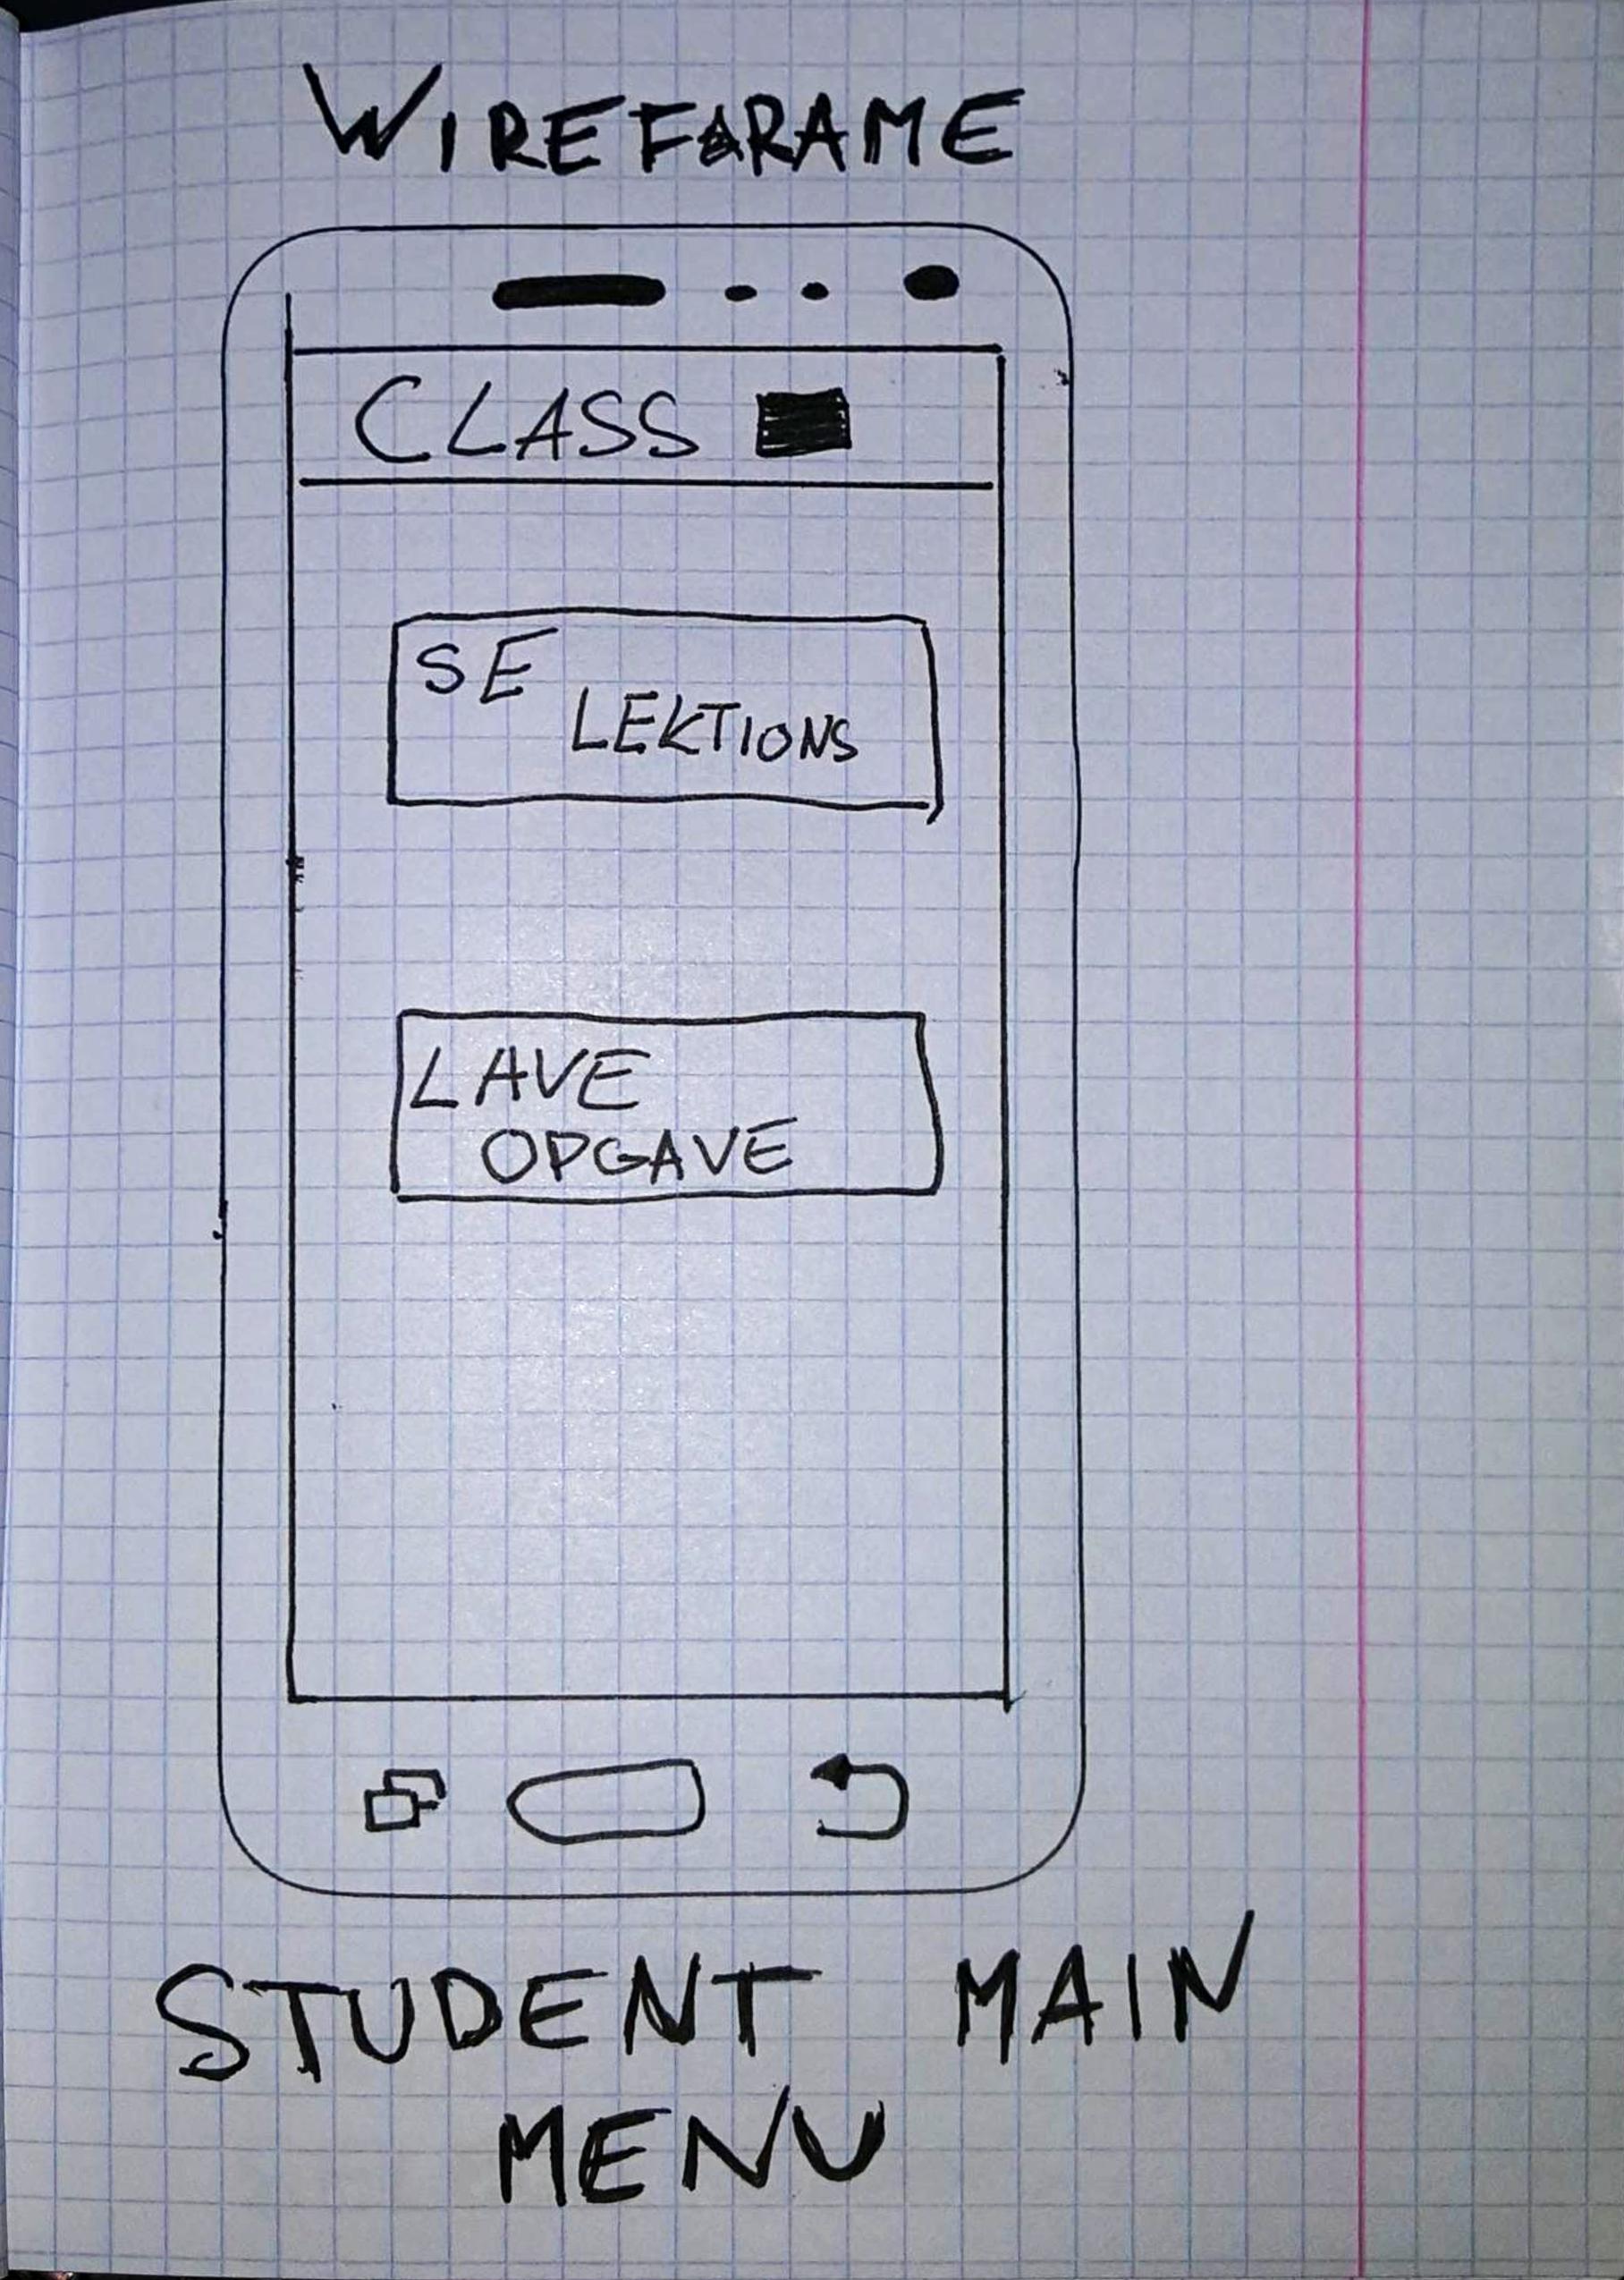 WIREFARAME
CLASS
SE
LEKTIONS
LAVE
OPGAVE
STUDENT MAIN
MENU